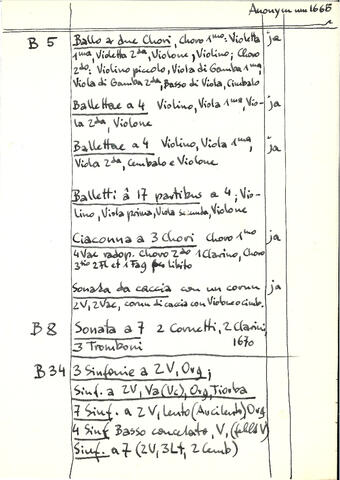 Anonym um 1665
1
B 5 Ballo a due Chori, Choro 1mo: Violetta ja
1ma, Violetta 2da, Violone, Violino; Choro
2do: Violino piccolo, Viola di Gamba 1ma,
Viola di Gamba 2da, Basso di Viola, Cimbalo
Ballettae a 4 Violino, Viola 1ma, Vio- ja
la 2da, Violone
Ballettae a 4 Violino, Viola 1ma, ja
Viola 2da, Cembalo e Violone
Balletti â 17 partibus a 4; Vio-
lino, Viola prima, Viola secunda, Violone
Ciaconna a 3 Chori Choro 1mo ja
4 Vae radop. Choro 2do 1 Clarino, Choro
3tio 2 Fl et 1 Fag libito
Sonata da caccia con un cornu ja
2V, 2Vae, cornu di caccia con Violone o Cimb.
B 8 Sonata a 7 2 Cornetti, 2 Clarini
3 Tromboni 1670
B 34 3 Sinfonie a 2 V, Org;
Sinf. a 2V, Va (Vc), Org, Tiorba
7 Sinf. a 2V, Leuto (Arcileuto) Org
4 Sinf Basso concelato, V, (fehlt V)
Sinf. a 7 (2V, 3Lt, 2 Cemb)